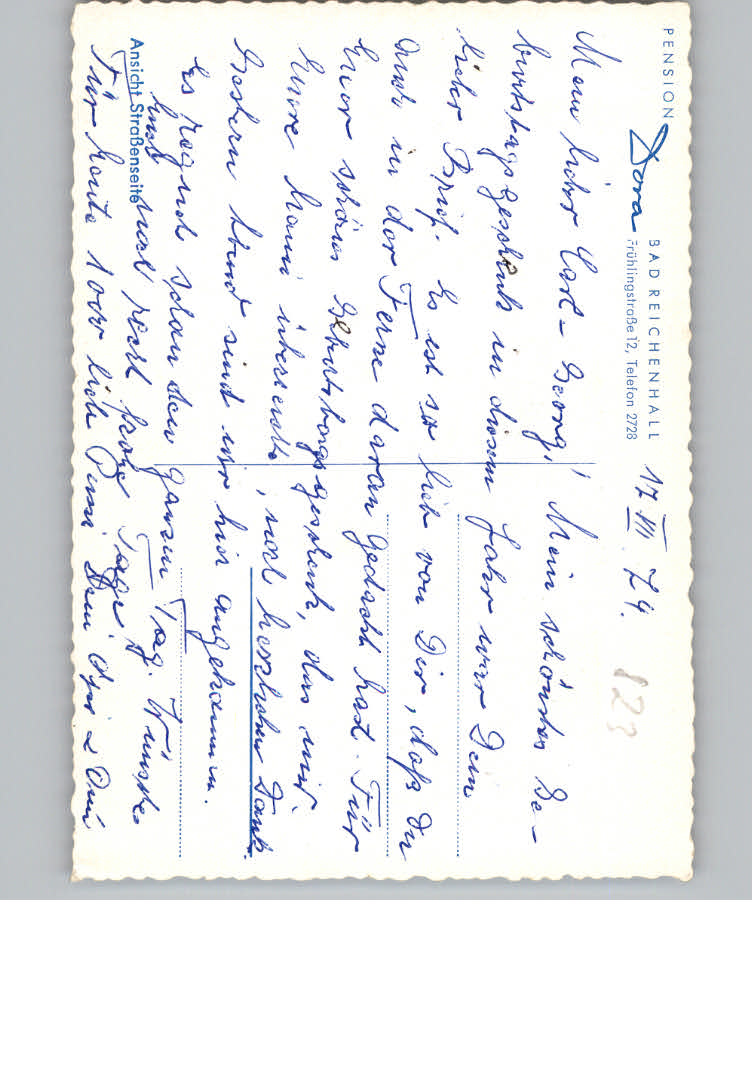 PENSION
Dora
BAD REICHENHALL
Frühlingstraße 12, Telefon 2728
17. III. 74.
123
Mein lieber Carl-Georg! Mein schönstes Ge-
burtstagsgeschenk in diesem Jahr war Dein
lieber Brief. Es ist so lieb von Dir, daß Du
auch in der Ferne daran gedacht hast. Für
Euer schönes Geburtstagsgeschenk, das mir
Eure Mami überreichte, noch herzlichen Dank.
Gestern Abend sind wir hier angekommen.
Es regnet schon den ganzen Tag. Wünsche
Euch noch recht frohe Tage
Für heute 1000 liebe
Ansicht Straßenseite